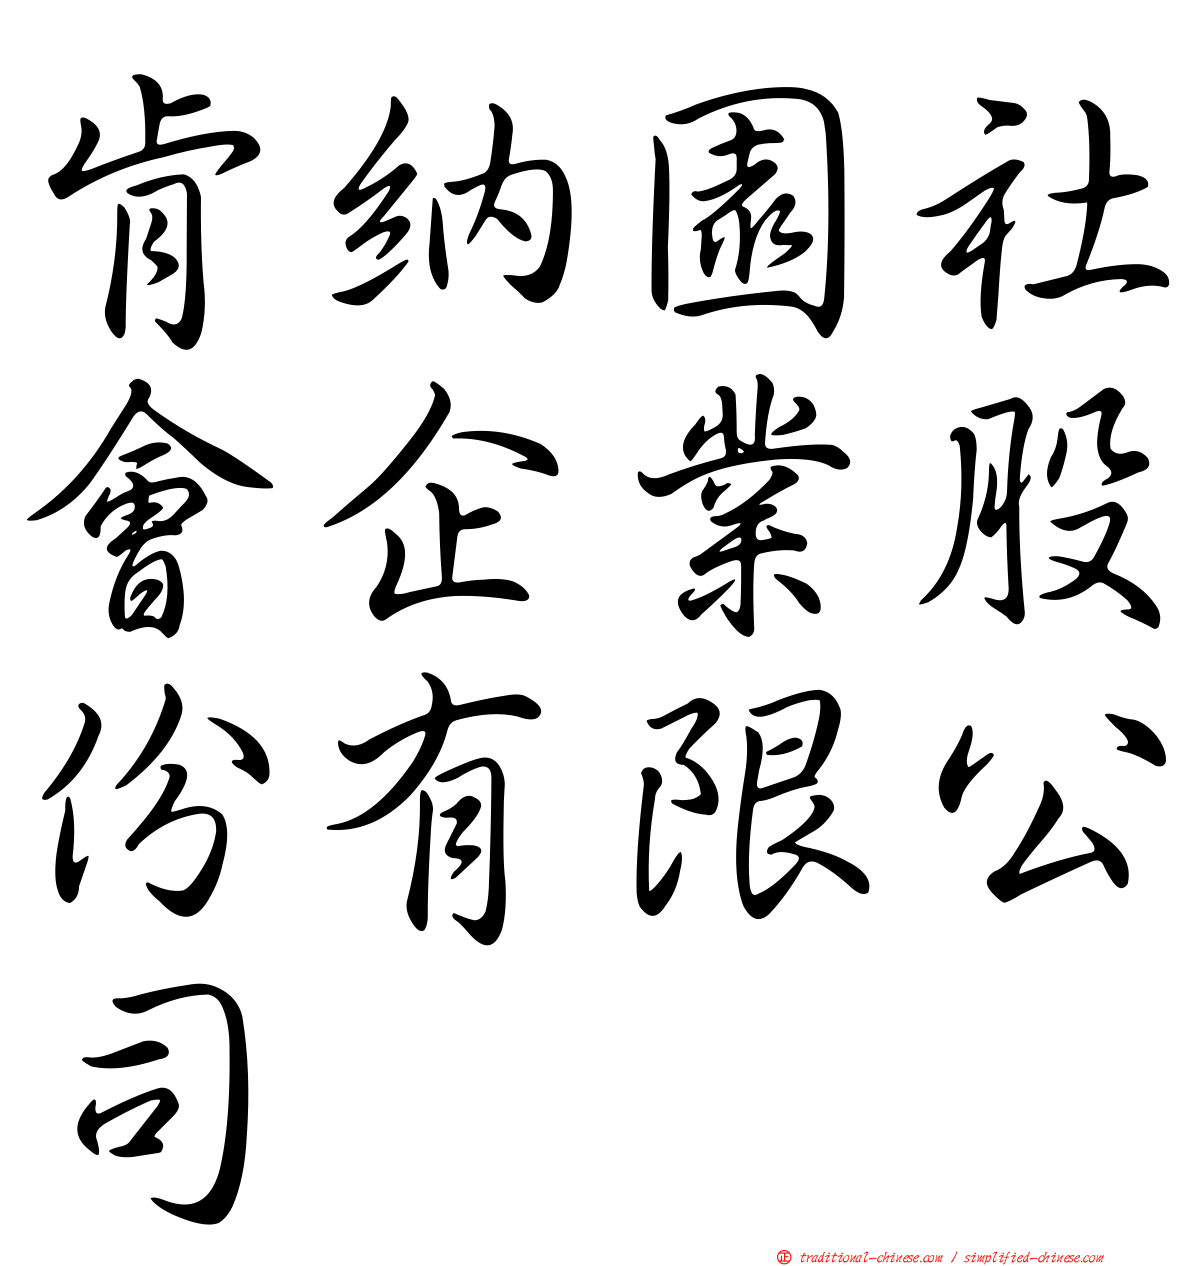 肯納園社
會企業股
份有限公
司
正 traditional-chinese.com / simplified-chinese.com